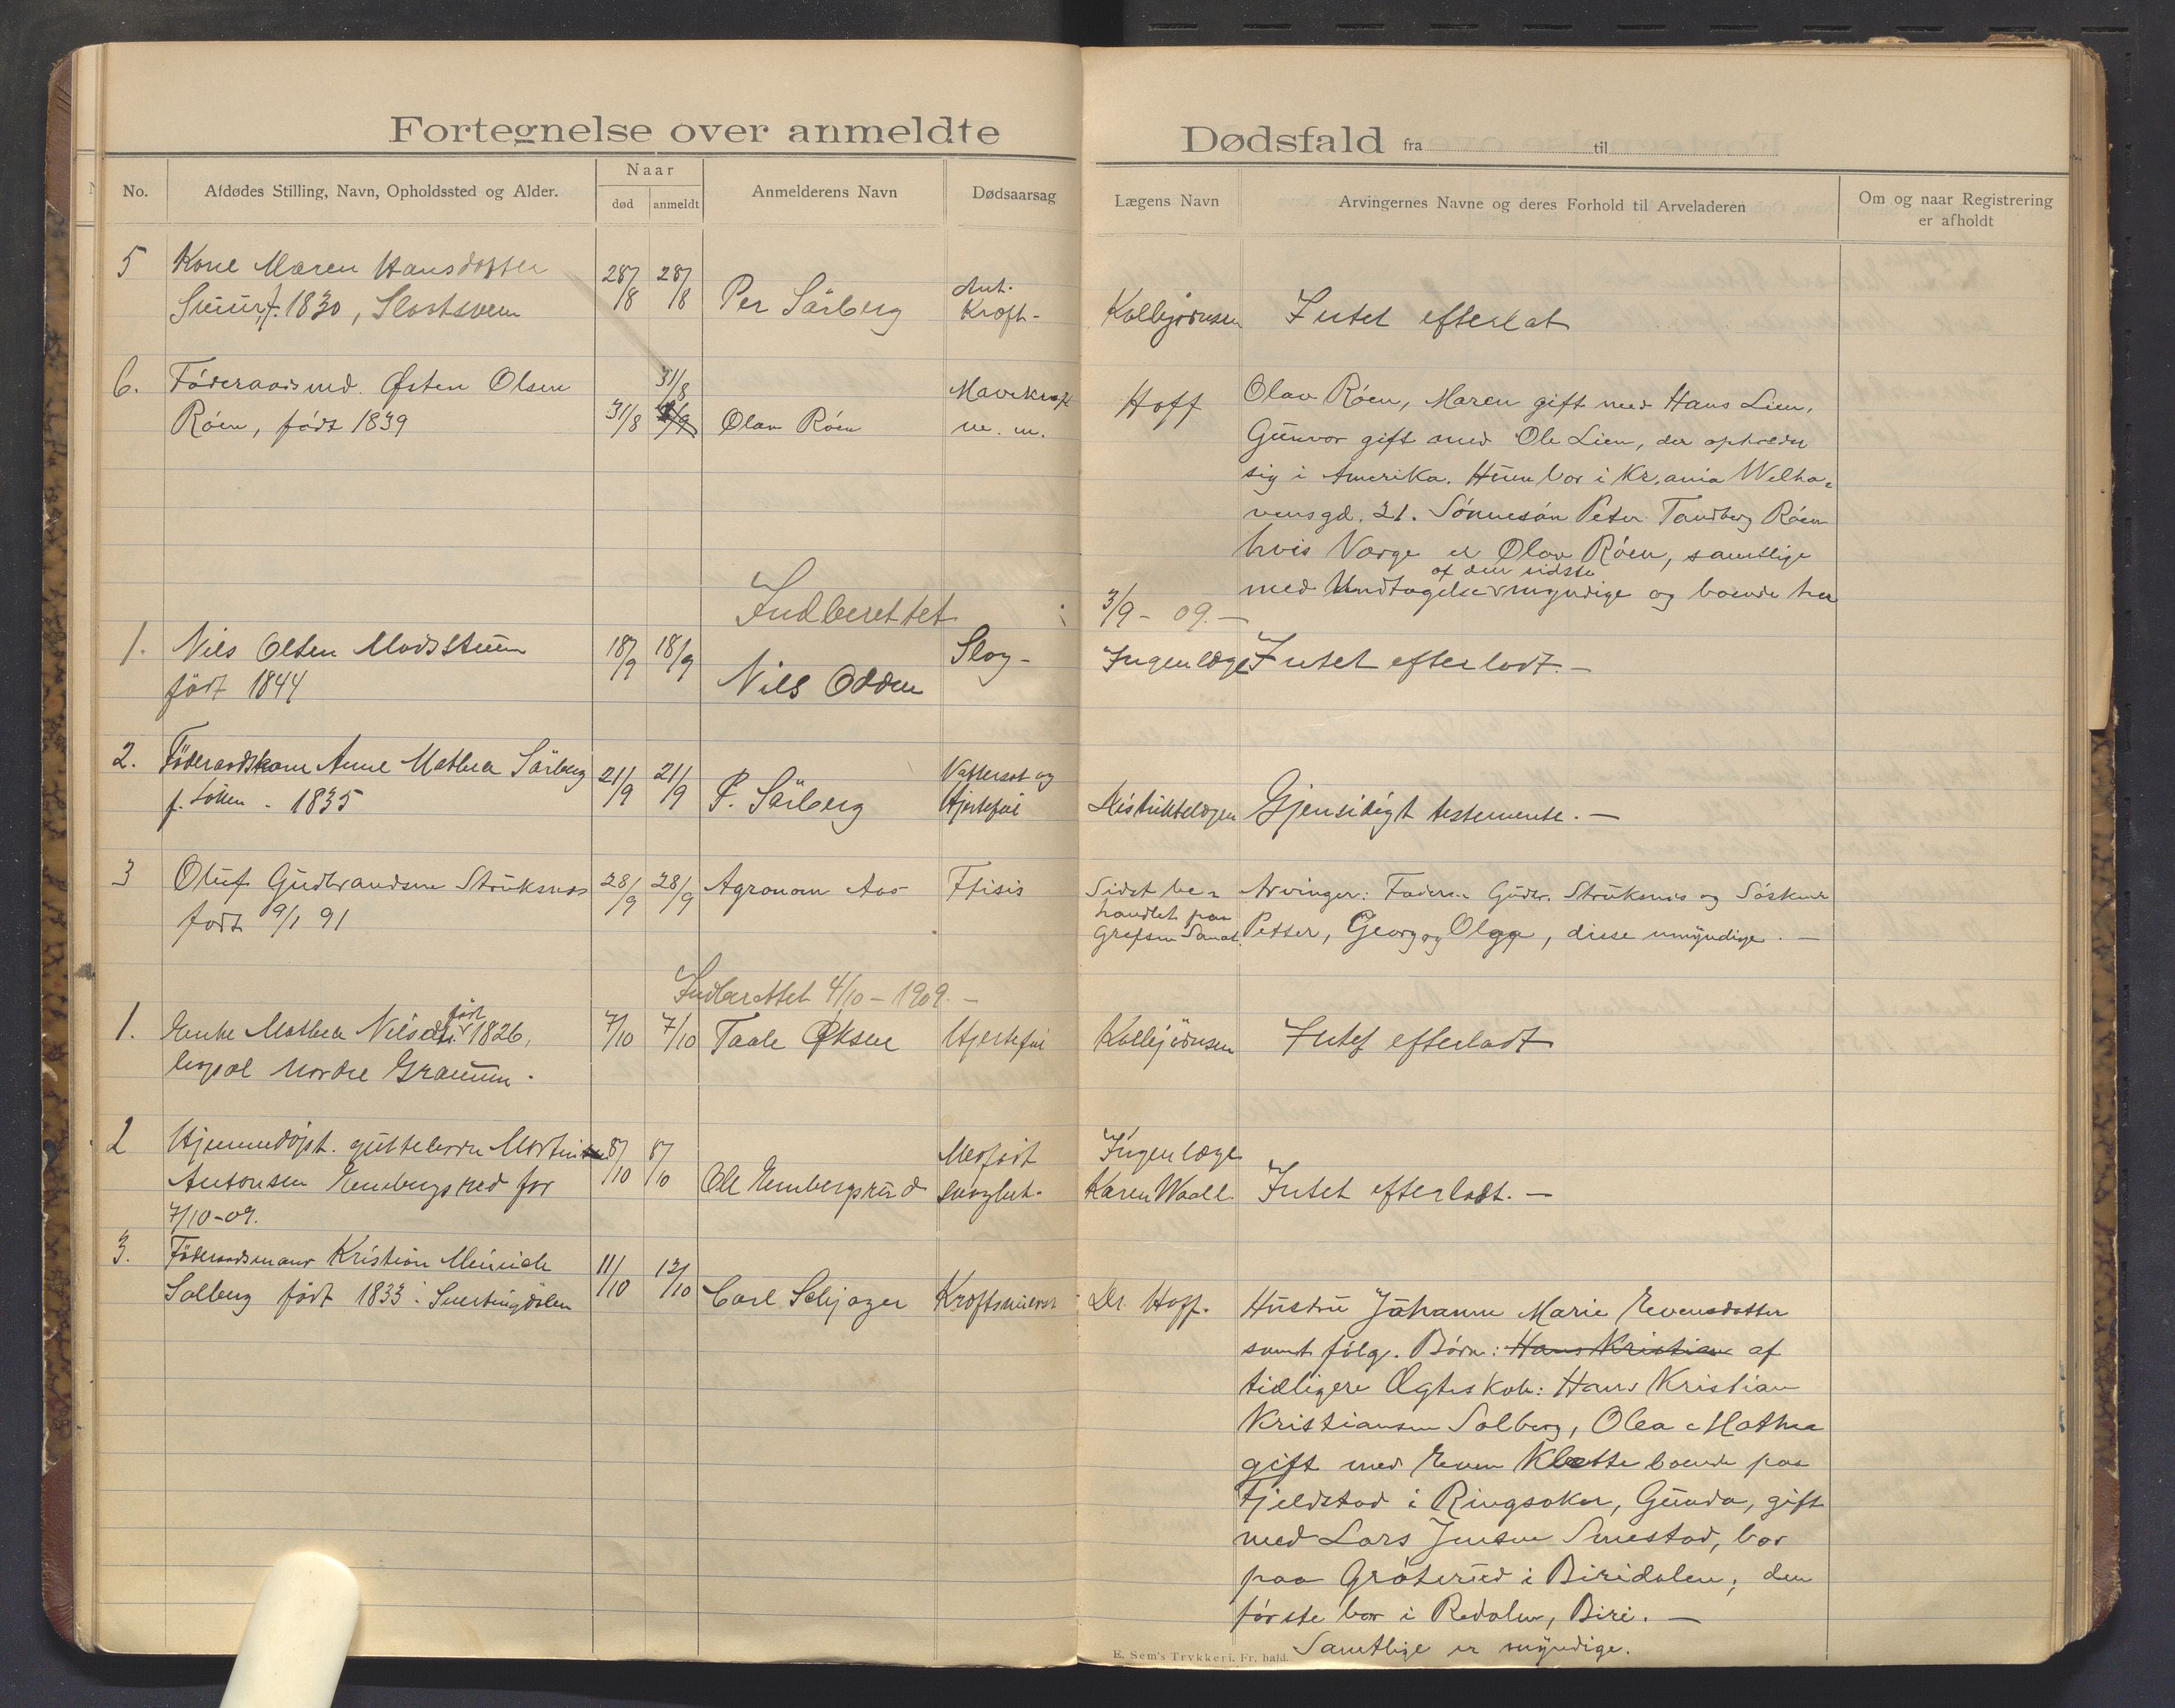 Fortegnelse over anmeldte Dødsfald fra til
No. Afdødes Stilling, Navn, Opholdssted og Alder. Naar Anmelderens Navn Dødsaarsag Lægens Navn Arvingernes Navne og deres Forhold til Arveladeren Om og naar Registrering
død anmeldt er afholdt
5 Kone Maren Hansdatter 28/8 28/8 Per Sårberg Ant. Kræft- Kolbjørnsen Intet efterlat
f. 1830,
6. Föderaadsmd. Østen Olsen 31/8 31/8 Olav Röen Mavekræft Hoff Olav Röen, Maren gift med Hans Lien,
Röen, født 1839 m. m. Gunvor gift med Ole Lien, der opholder
sig i Amerika. Hun bor i Kr.ania Welha=
vensgd. 21. Sönnesön Peter Tandberg Röen
hvis Værge er Olav Röen, samtlige
med Undtagelse af den sidste myndige og boende her
Indberettet 3/9 - 09. -
1. Nils Olsen 18/9 18/9 Nils Odden Slag- Ingen læge Intet efterladt. -
född 1844
2. Föderaadskone Anne Mathea Sårberg 21/9 21/9 P. Sårberg Vattersot og Distriktslægen Gjensidigt testemente. -
f. - 1835 Hjertefeil
3 Oluf Gudbrandsen Struksnæs 28/9 28/9 Agronom Aas Ftisis Sidst be= Arvinger: Faderen Gudbr. Struksnæs og Söskende
født 9/1 91 handlet paa
Grefsen Sanat. Petter, Georg og Olga, disse umyndige. -
Indberettet 4/10 - 1909. -
1. Enke Mathea Nilsdtr. født 1826, 7/10 7/10 Taale Øksne Hjertefeil Kolbjörnsen Intet efterladt
Nordre
2 Hjemmedöpt guttebarn Martin 8/10 8/10 Ole Ernbergsrud Medfødt Ingen læge
Antonsen født svaghet. Karen Waale Intet efterladt. -
7/10-09.
3. Föderaadsmand Kristian Minich 11/10 12/10 Carl Schjager Kræftsvulst Dr. Hoff. Hustru Johanne Marie Evensdatter
Solberg født 1833 : Snertingdalen
samt fölg. Börn: Hans Kristian af
tidligere Ægteskab: Hans Kristian
Kristiansen Solberg, Olea Mathea
gift med Even Klætte boende paa
Fjeldstad i Ringsaker, Gunda, gift
med Lars Jensen Smestad, bor
paa Gröterud i Biridalen; den
förste bor i Redalen, Biri. -
Samtlige er myndige.
E. Sem's Trykkeri. Fr. hald.